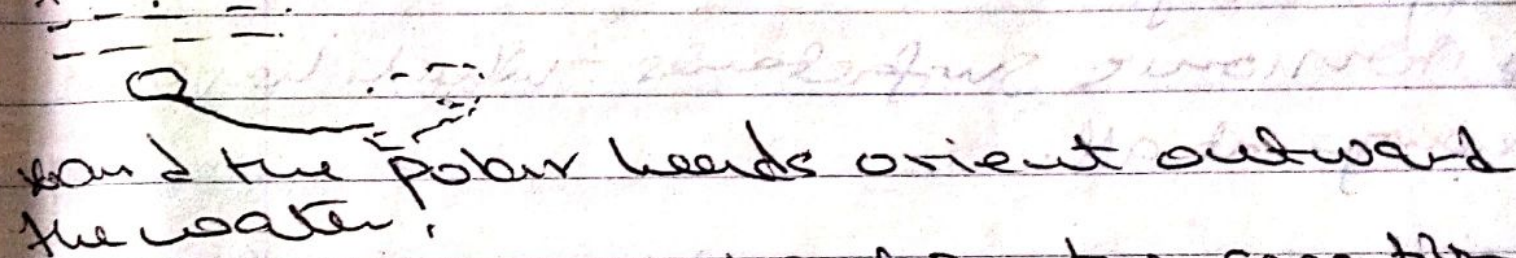 and the polar heads orient outward
the water.